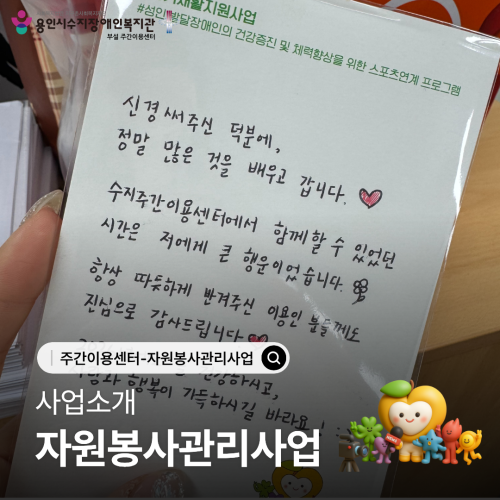 용인시수지장애인복지관
부설 주간이용센터
재활지원사업
#성인 발달장애인의 건강증진 및 체력향상을 위한 스포츠연계 프로그램
신경 써주신 덕분에,
정말 많은 것을 배우고 갑니다.
수지주간이용센터에서 함께할 수 있었던
시간은 저에게 큰 행운이었습니다.
항상 따듯하게 반겨주신 이용인 분들께도
진심으로 감사드립니다
건강하시고,
행복이 가득하시길 바라요!
주간이용센터-자원봉사관리사업
사업소개
자원봉사관리사업